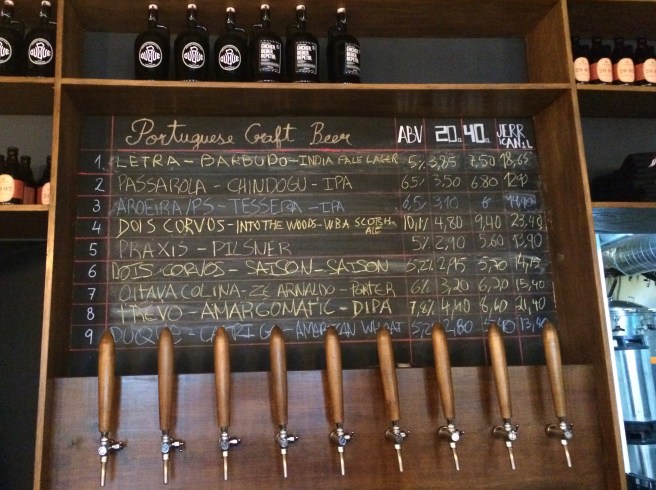 Portuguese Craft Beer ABV 20CL 40CL JERRICAN 1L
1 LETRA - BARBUDO - INDIA PALE LAGER 5% 3,85 7,50
2 PASSAROLA - CHINDOGU - IPA 6.5% 3,50 6,80
3 AROEIRA/PS - TESSERA - IPA 6,5% 3,10
4 DOIS CORVOS - INTO THE WOODS - WBA SCOTCH ALE 10,1% 4,80 9,40 23,40
5 PRAXIS - PILSNER 5% 5.60 13,90
6 DOIS CORVOS - SAISON - SAISON 5,2% 2,95 14,75
7 OITAVA COLINA - ZÉ ARNALDO - PORTER 6% 3,20 6,20 15,40
8 TREVO - AMARGONATIC - DIPA 4,40 8,60 21,40
9 AMERICAN WHEAT 2,80